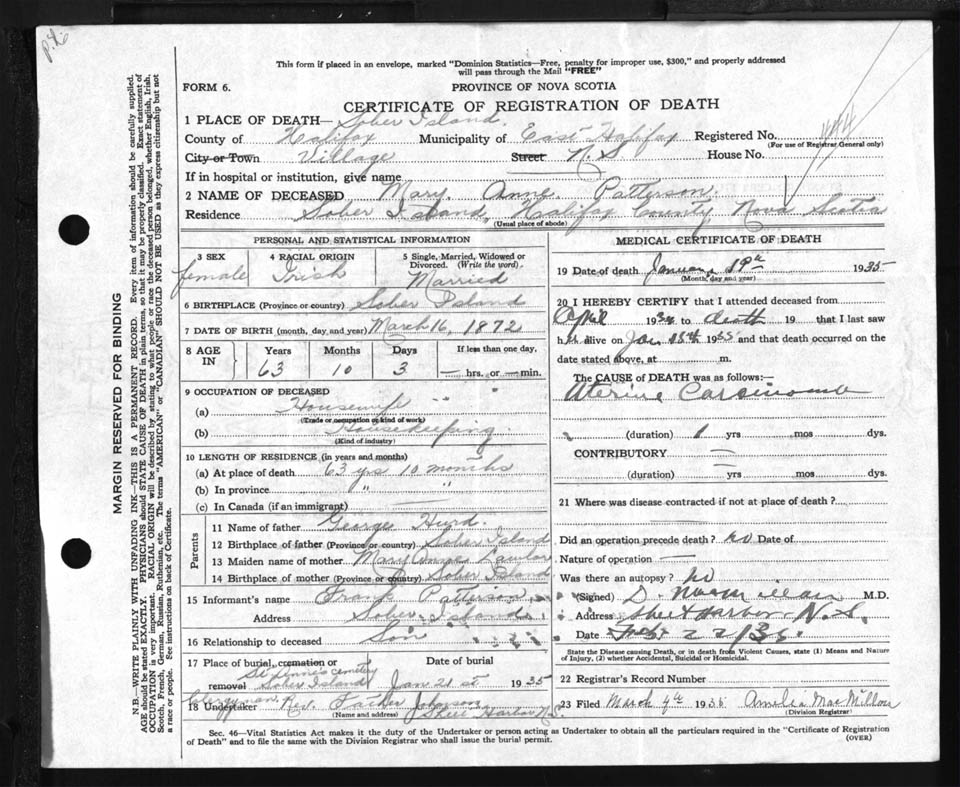 This form if placed in an envelope, marked "Dominion Statistics—Free, penalty for improper use, $300," and properly addressed
will pass through the Mail "FREE"
FORM 6.
PROVINCE OF NOVA SCOTIA
CERTIFICATE OF REGISTRATION OF DEATH
1 PLACE OF DEATH— Sober Island.
County of Halifax Municipality of East Halifax Registered No.
(For use of Registrar General only)
City or Town Village Street N.S House No.
If in hospital or institution, give name
2 NAME OF DECEASED Mary Anne Patterson.
Residence Sober Island, Halifax County Nova Scotia
(Usual place of abode)
PERSONAL AND STATISTICAL INFORMATION
3 SEX 4 RACIAL ORIGIN 5 Single, Married, Widowed or Divorced. (Write the word).
female Irish Married
6 BIRTHPLACE (Province or country) Sober Island
7 DATE OF BIRTH (month, day, and year) March 16, 1872
8 AGE IN Years Months Days If less than one day,
63 10 3 — hrs. or — min.
9 OCCUPATION OF DECEASED
(a) Housewife "
(Trade or occupation or kind of work)
(b) Housekeeping.
(Kind of industry)
10 LENGTH OF RESIDENCE (in years and months)
(a) At place of death 63 yrs 10 months
(b) In province " "
(c) In Canada (if an immigrant) —
Parents
11 Name of father George Hurd.
12 Birthplace of father (Province or country) Sober Island
13 Maiden name of mother Mary Anne Lawlor
14 Birthplace of mother (Province or country) Sober Island
15 Informant's name Frank Patterson
Address Sober Island
16 Relationship to deceased Son
17 Place of burial, cremation or removal St Anne's cemetery Sober Island
Date of burial Jan 21st 1935
Clergyman
18 Undertaker Rev. Father Johnson
(Name and address) Sheet Harbor N.S.
MEDICAL CERTIFICATE OF DEATH
19 Date of death January 19th 1935
(Month, day and year)
20 I HEREBY CERTIFY that I attended deceased from
April 1934 to death 19 that I last saw
her alive on Jan 15th 1935 and that death occurred on the
date stated above, at m.
The CAUSE of DEATH was as follows:—
Uterine Carsinoma
(duration) 1 yrs mos dys.
CONTRIBUTORY —
(duration) — yrs mos dys.
21 Where was disease contracted if not at place of death?
Did an operation precede death? no Date of
Nature of operation —
Was there an autopsy? no
(Signed) D. M.D.
Address Sheet Harbor N.S.
Date Feb 22/35
State the Disease causing Death, or in death from Violent Causes, state (1) Means and Nature
of Injury, (2) whether Accidental, Suicidal or Homicidal.
22 Registrar's Record Number
23 Filed March 4th 1935 Amelia MacMillan
(Division Registrar)
Sec. 46—Vital Statistics Act makes it the duty of the Undertaker or person acting as Undertaker to obtain all the particulars required in the "Certificate of Registration
of Death" and to file the same with the Division Registrar who shall issue the burial permit.
(OVER)
MARGIN RESERVED FOR BINDING
N.B.—WRITE PLAINLY WITH UNFADING INK—THIS IS A PERMANENT RECORD. Every item of information should be carefully supplied.
AGE should be stated EXACTLY. PHYSICIANS should STATE CAUSE OF DEATH in plain terms, so that it may be properly classified. Exact statement of
OCCUPATION is very important. RACIAL ORIGIN will be described by stating to what people or race the deceased person belonged, whether English, Irish,
Scotch, French, German, Russian, Ruthenian, etc. The terms "AMERICAN" or "CANADIAN" SHOULD NOT BE USED as they express citizenship but not
a race or people. See instructions on back of Certificate.